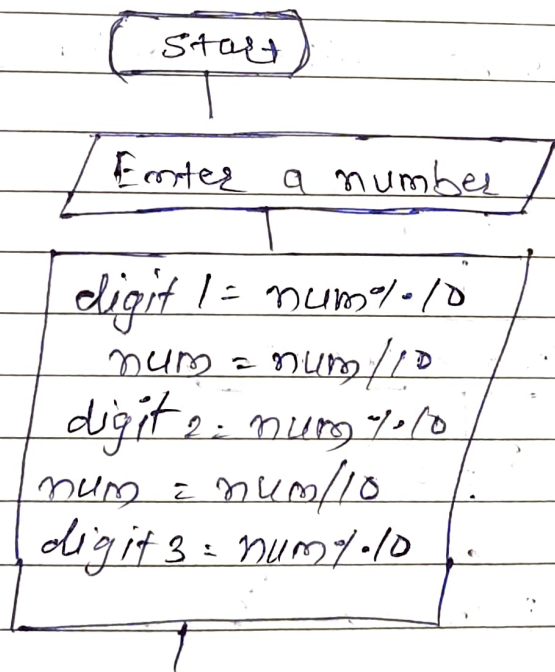 Start
Enter a number
digit 1 = num%10
num = num/10
digit 2 = num%10
num = num/10
digit 3 = num%10